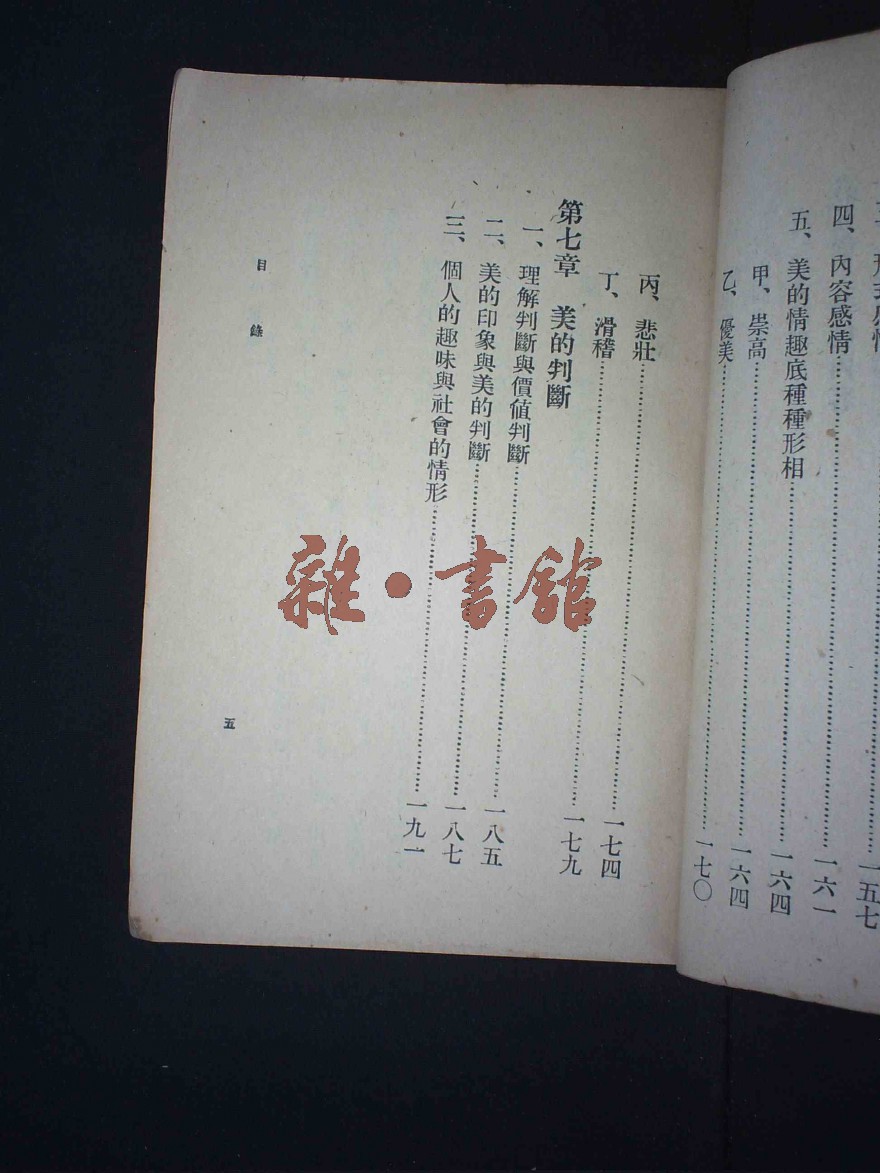 感情⋯⋯一五七
四、內容感情⋯⋯一六一
五、美的情趣底種種形相⋯⋯一六四
甲、崇高⋯⋯一六四
乙、優美⋯⋯一七〇
丙、悲壯⋯⋯一七四
丁、滑稽⋯⋯一七九
第七章　美的判斷
一、理解判斷與價值判斷⋯⋯一八五
二、美的印象與美的判斷⋯⋯一八七
三、個人的趣味與社會的情形⋯⋯一九一
目錄
五
雜•書館